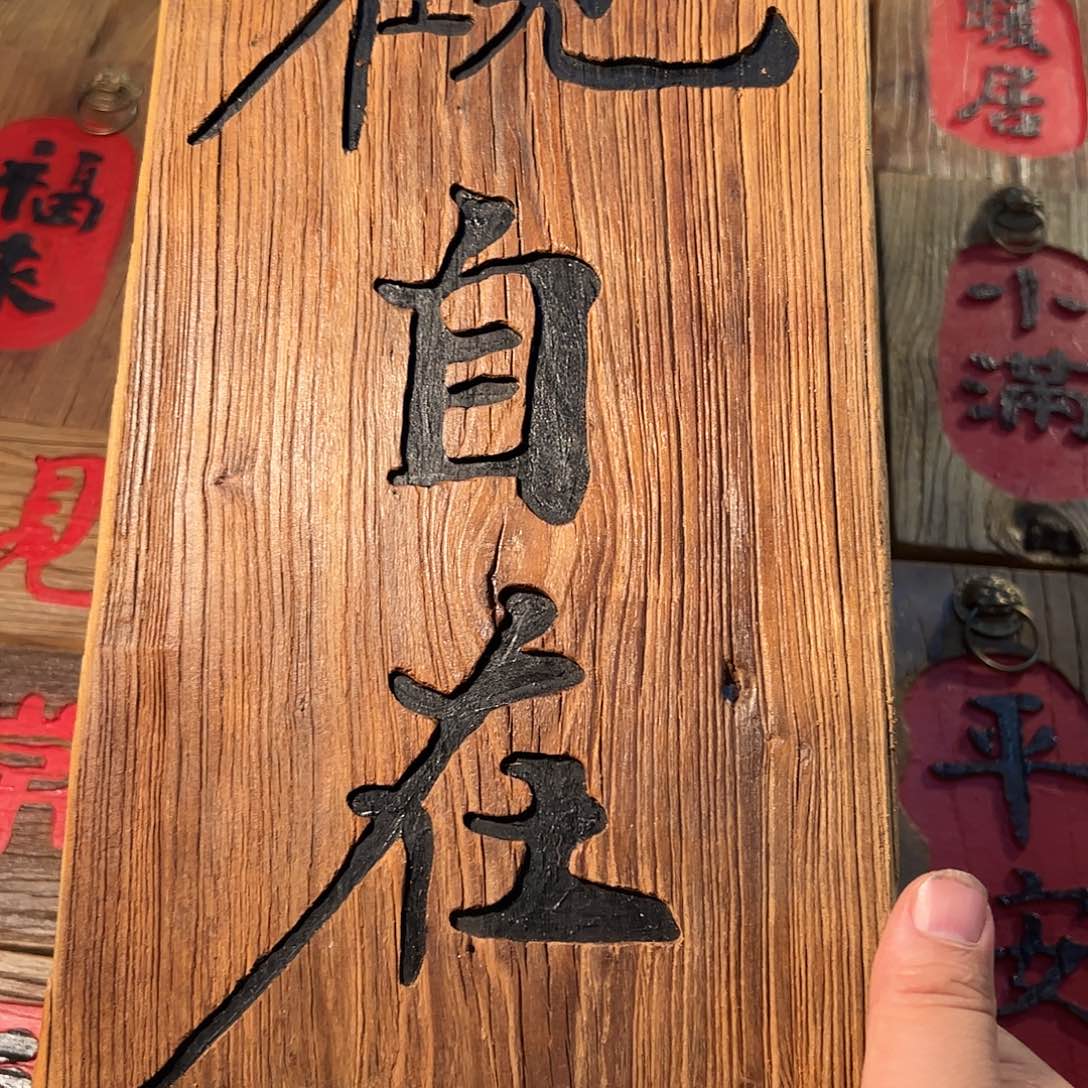 觀自在
福来
小满
平安
見